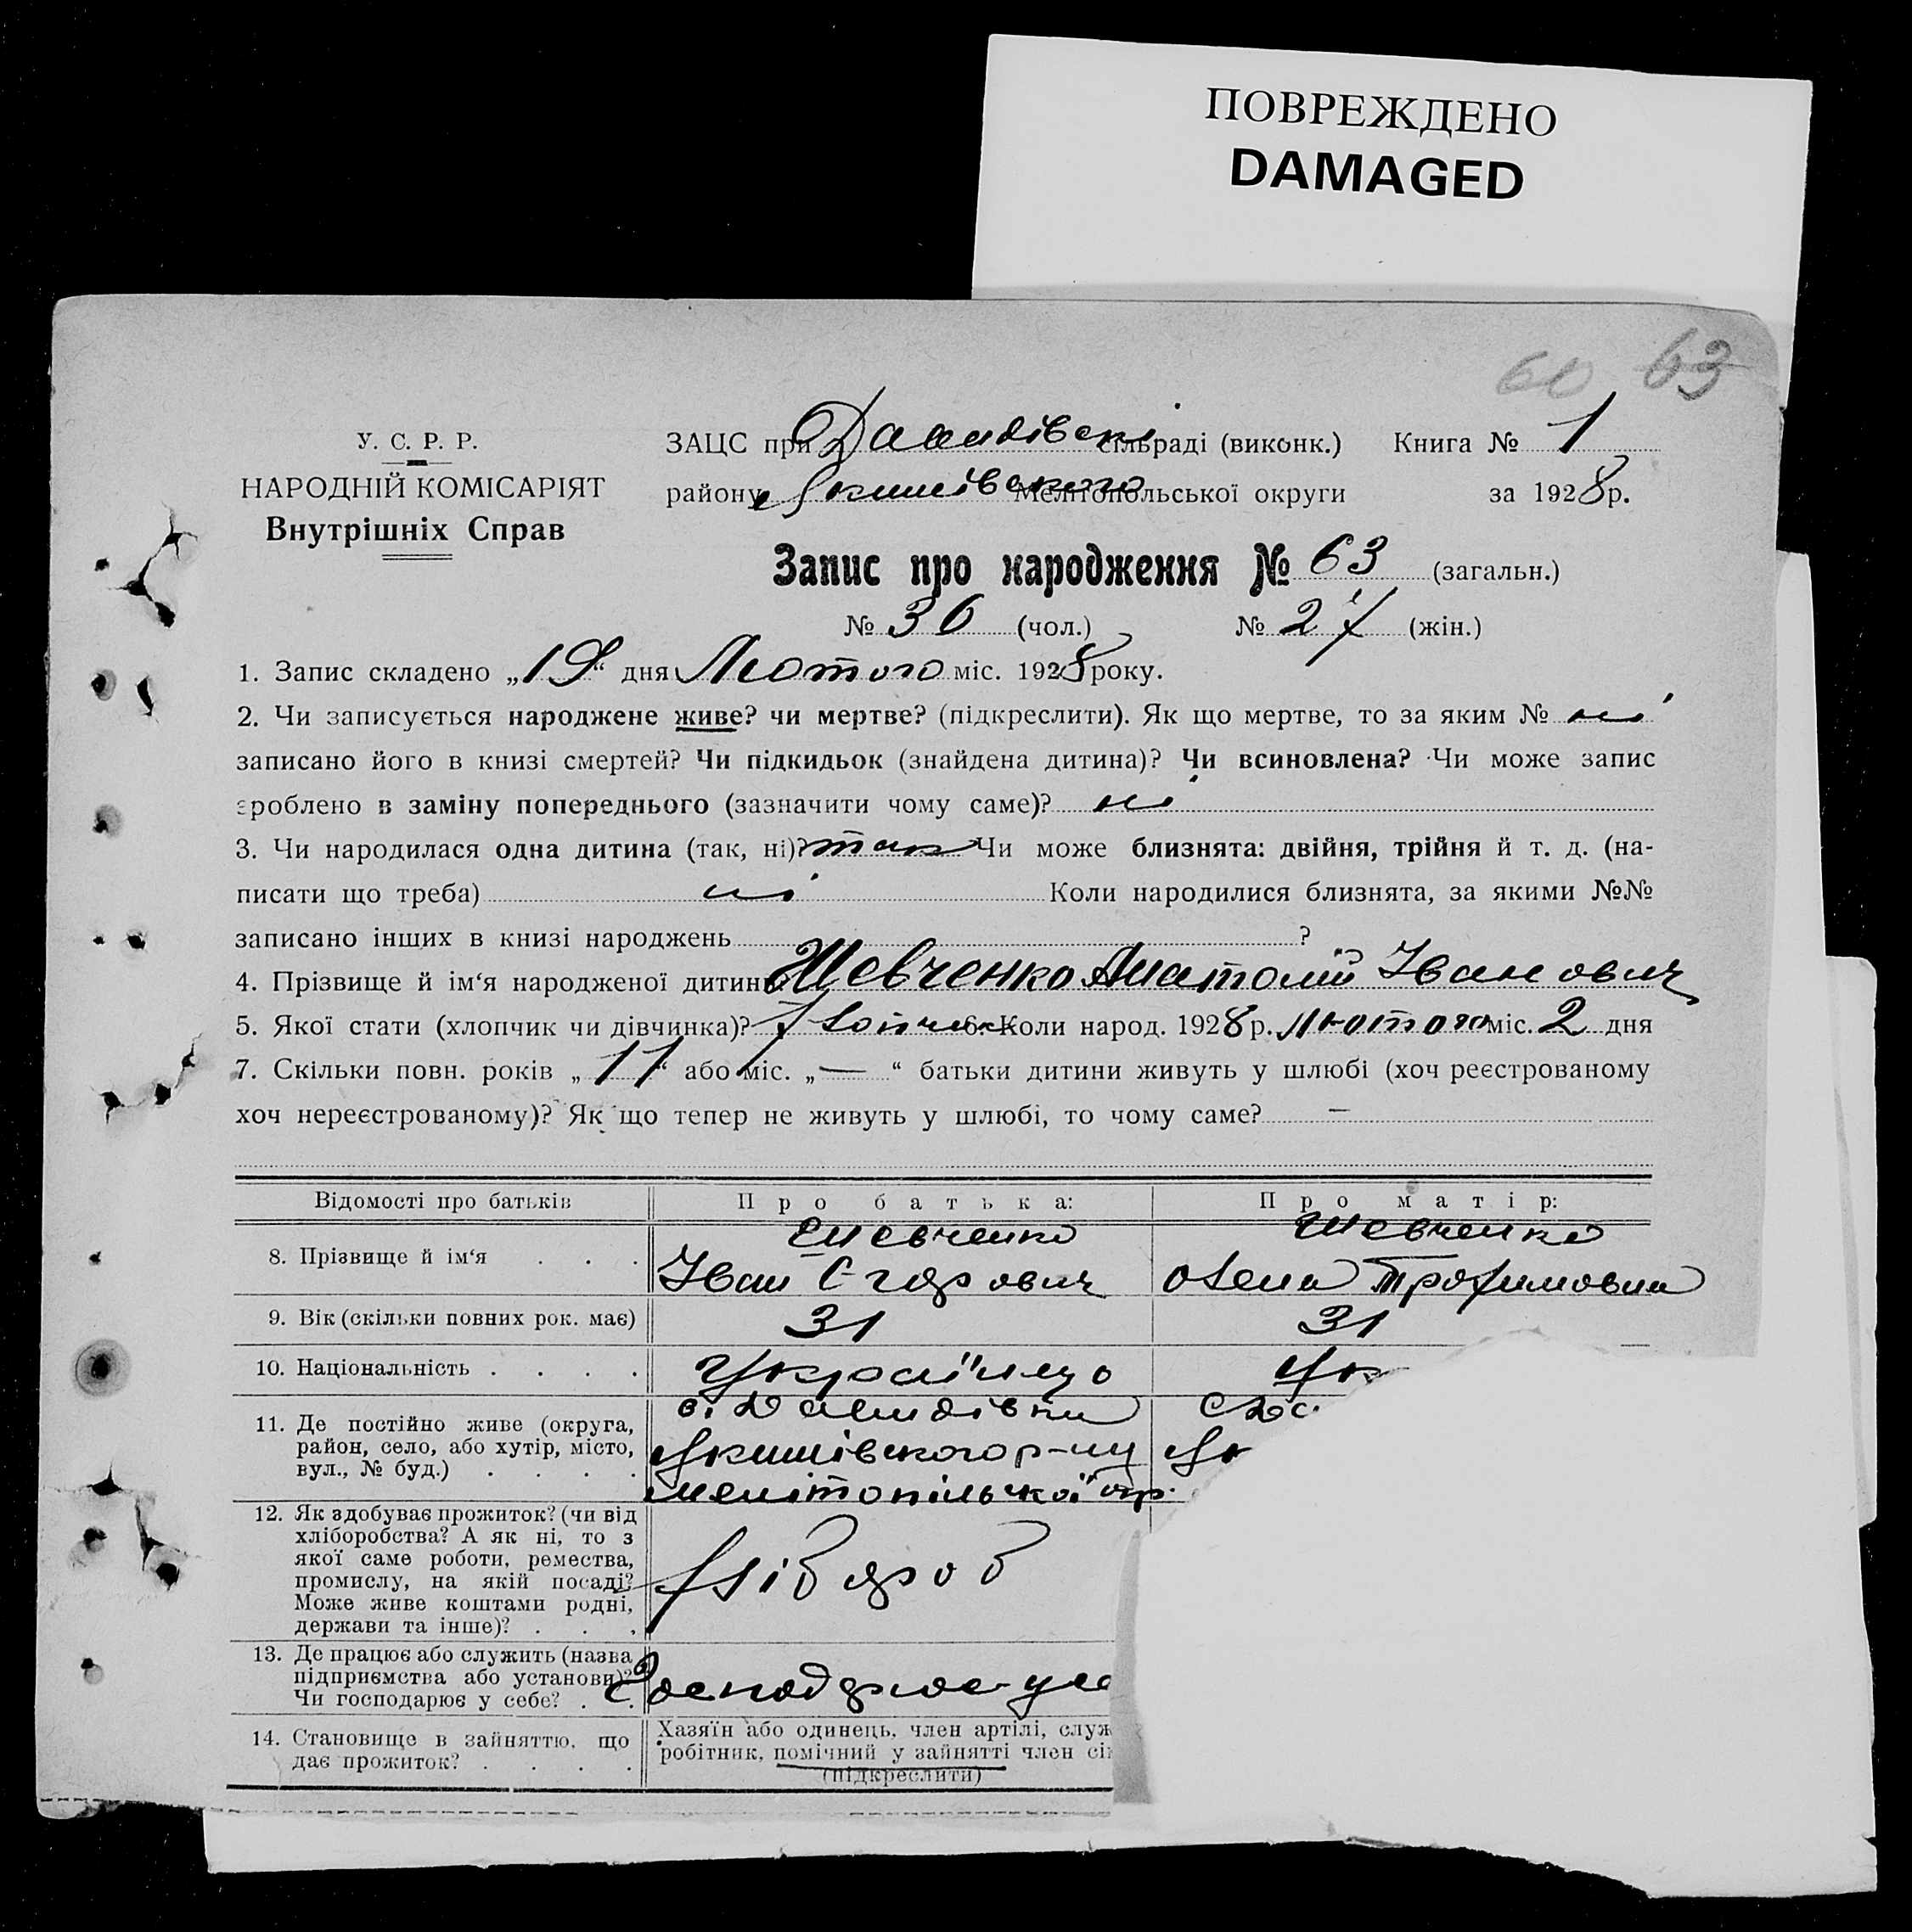 ПОВРЕЖДЕНО
DAMAGED
60 63
У. С. Р. Р.
НАРОДНІЙ КОМІСАРІЯТ
Внутрішніх Справ
ЗАЦС при Давидівскі сільраді (виконк.) Книга № 1
району Якимівского Мелітопольської округи за 1928 р.
Запис про народження № 63 (загальн.)
№ 36 (чол.) № 27 (жін.)
1. Запис складено „19“ дня Лютого міс. 1928 року.
2. Чи записується народжене живе? чи мертве? (підкреслити). Як що мертве, то за яким № ні
записано його в книзі смертей? Чи підкидьок (знайдена дитина)? Чи всиновлена? Чи може запис
зроблено в заміну попереднього (зазначити чому саме)? ні
3. Чи народилася одна дитина (так, ні)? так Чи може близнята: двійня, трійня й т. д. (на-
писати що треба) ні Коли народилися близнята, за якими №№
записано інших в книзі народжень ?
4. Прізвище й ім‘я народженої дитини Шевченко Анатолій Іванович
5. Якої стати (хлопчик чи дівчинка)? Хлопчик 6. Коли народ. 1928 р. Лютого міс. 2 дня
7. Скільки повн. років „11“ або міс. „—“ батьки дитини живуть у шлюбі (хоч реєстрованому
хоч нереєстрованому)? Як що тепер не живуть у шлюбі, то чому саме? —
Відомості про батьків Про батька: Про матір:
8. Прізвище й ім‘я . . . Шевченко Шевченко
Іван Єгорович Олена Трофимовна
9. Вік (скільки повних рок. має) 31 31
10. Національність . . . . Українець Ук
11. Де постійно живе (округа, с. Давидівки с.
район, село, або хутір, місто, Якимівского р-ну Як
вул., № буд.) . . . . Мелітопільскої окр.
12. Як здобуває прожиток? (чи від
хліборобства? А як ні, то з
якої саме роботи, ремества, Хлібороб
промислу, на якій посаді?
Може живе коштами родні,
держави та інше)? . . .
13. Де працює або служить (назва
підприємства або установи)? Господарює у се
Чи господарює у себе? . .
14. Становище в зайняттю, що Хазяїн або одинець, член артілі, служ
дає прожиток? . . . . робітник, помічний у зайнятті член сі
(підкреслити)